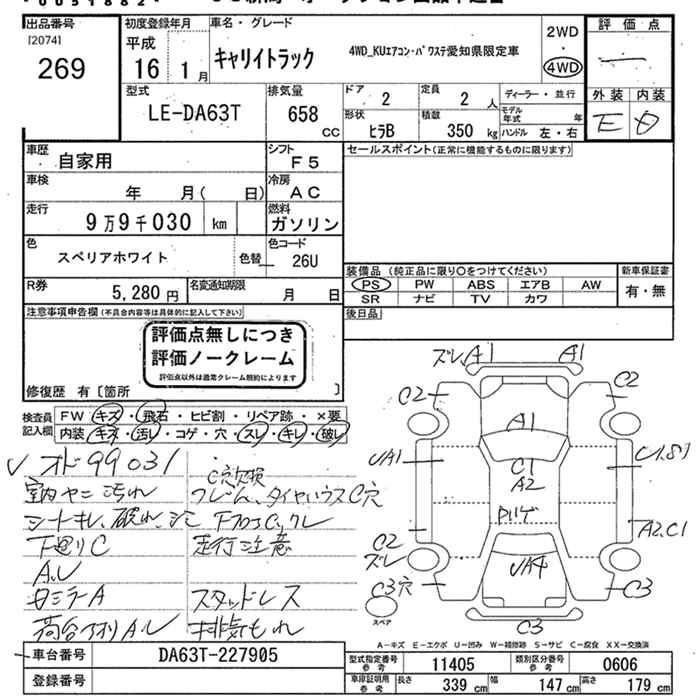 出品番号
[2074]
269
初度登録年月
平成
16 1月
車名・グレード
キャリイトラック
4WD_KUエアコン・パワステ愛知県限定車
2WD
・
4WD
評価点
外装 内装
E D
型式
LE-DA63T
排気量
658
CC
ドア
2
定員
2 人
形状
ヒラB
積数
350 kg
ディーラー・並行
モデル年式 年
ハンドル 左・右
車歴
自家用
シフト
F5
車検
年 月( 日)
冷房
AC
走行
9万9千030 km
燃料
ガソリン
色
スペリアホワイト
色替
色コード
26U
R券
5,280 円
名変通知期限
月 日
セールスポイント(正常に機能するものに限ります)
装備品 (純正品に限り○をつけてください)
PS PW ABS エアB AW
SR ナビ TV カワ
新車保証書
有・無
後日品
注意事項申告欄(不具合内容等は具体的に記入して下さい)
評価点無しにつき
評価ノークレーム
評価点以外は通常クレーム規約によります
修復歴 有〔箇所 〕
検査員
記入欄
FW キズ・飛石・ヒビ割・リペア跡・×要
内装 キズ・汚し・コゲ・穴・スレ・キレ・破レ
オド99031
室内ヤニ汚れ
シートキレ、破れ、シミ
下廻りC
A,U
荷台アオリA,U
C穴欠損
走行注意
スタッドレス
排気もれ
ズレ A1 A1
C2 C2
A1
UA1
C1
A2
U1,S1
A2,C1
C2
ズレ
UA4
C3穴
C3
C3
スペア
A-キズ E-エクボ U-凹み W-補修跡 S-サビ C-腐食 XX-交換済
車台番号
DA63T-227905
登録番号
型式指定番号
参考
11405
類別区分番号
参考
0606
車庫証明用
参考
長さ
339 cm
幅
147 cm
高さ
179 cm